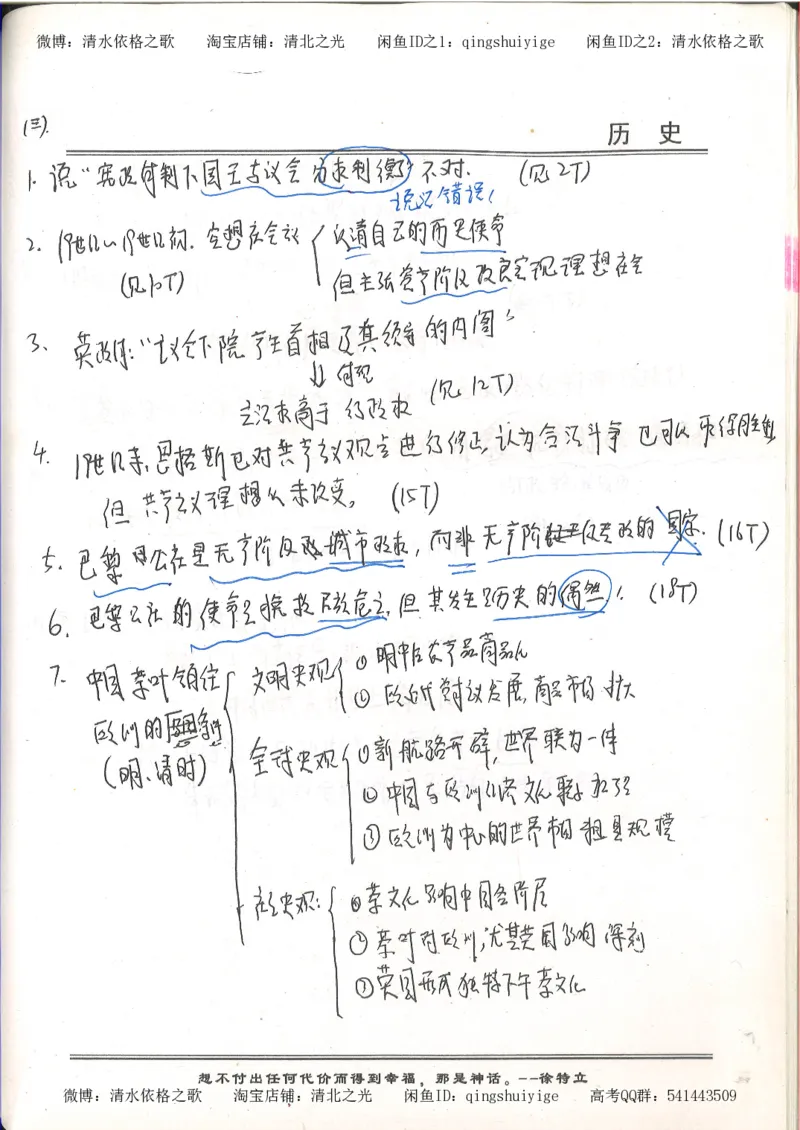 微博：清水依格之歌 淘宝店铺：清北之光 闲鱼ID之1：qingshuiyige 闲鱼ID之2：清水依格之歌
(三).
历 史
1. 说"君改制下国王与议会为求制衡"不对. (见2T)
说法错误!
2. 19世纪初. 空想社会主义 认清自己的历史使命
但主张资产阶级改良实现理想社会
(见10T)
3. 英政体:"议会下院产生首相及其领导的内阁"
↓体现
立法权高于行政权 (见12T)
4. 19世纪末,恩格斯已对共产主义观点进行修正,认为合法斗争也可以取得胜利
但共产主义理想仍未改变。 (15T)
5. 巴黎公社是无产阶级城市政权,而非无产阶级专政的国家. (16T)
6. 巴黎公社的使命是挽救民族危亡,但其发生是历史的偶然! (18T)
7. 中国茶叶销往 文明史观 ①明中后农产品商品化
②欧近代资本主义发展,商品市场扩大
欧洲的原因
(明、清时) 全球史观 ①新航路开辟,世界联为一体
②中国与欧洲经济文化联系加强
③欧洲为中心的世界市场粗具规模
社会史观: ①茶文化影响中国各阶层
②茶叶对欧洲,尤其英国影响深刻
③英国形成独特下午茶文化
想不付出任何代价而得到幸福，那是神话。--徐特立
微博：清水依格之歌 淘宝店铺：清北之光 闲鱼ID：qingshuiyige 高考QQ群：541443509